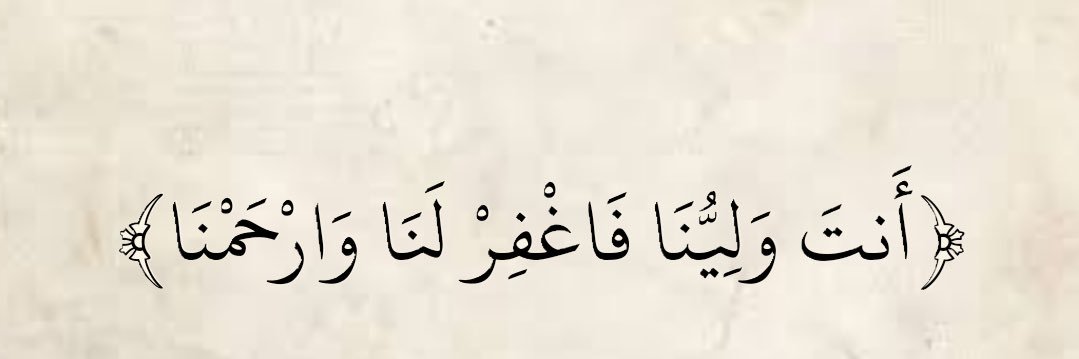 ﴿أَنتَ وَلِيُّنَا فَاغْفِرْ لَنَا وَارْحَمْنَا﴾